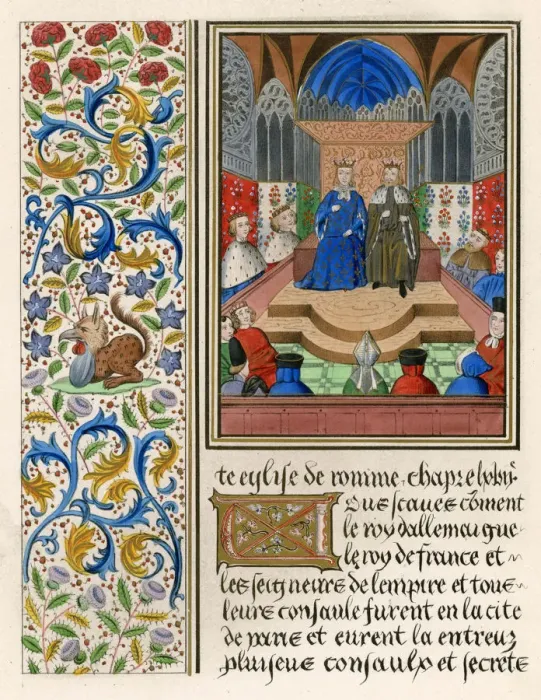 te eglise de romme. chapr̄e lxbiijᵉ.
Ous scaues cōment
le roy dallemaigne
le roy de france et
les seigneurs de lempire et tous
leurs consaulz furent en la cite
de paris et eurent la entreux
pluiseurs consaulx et secretz